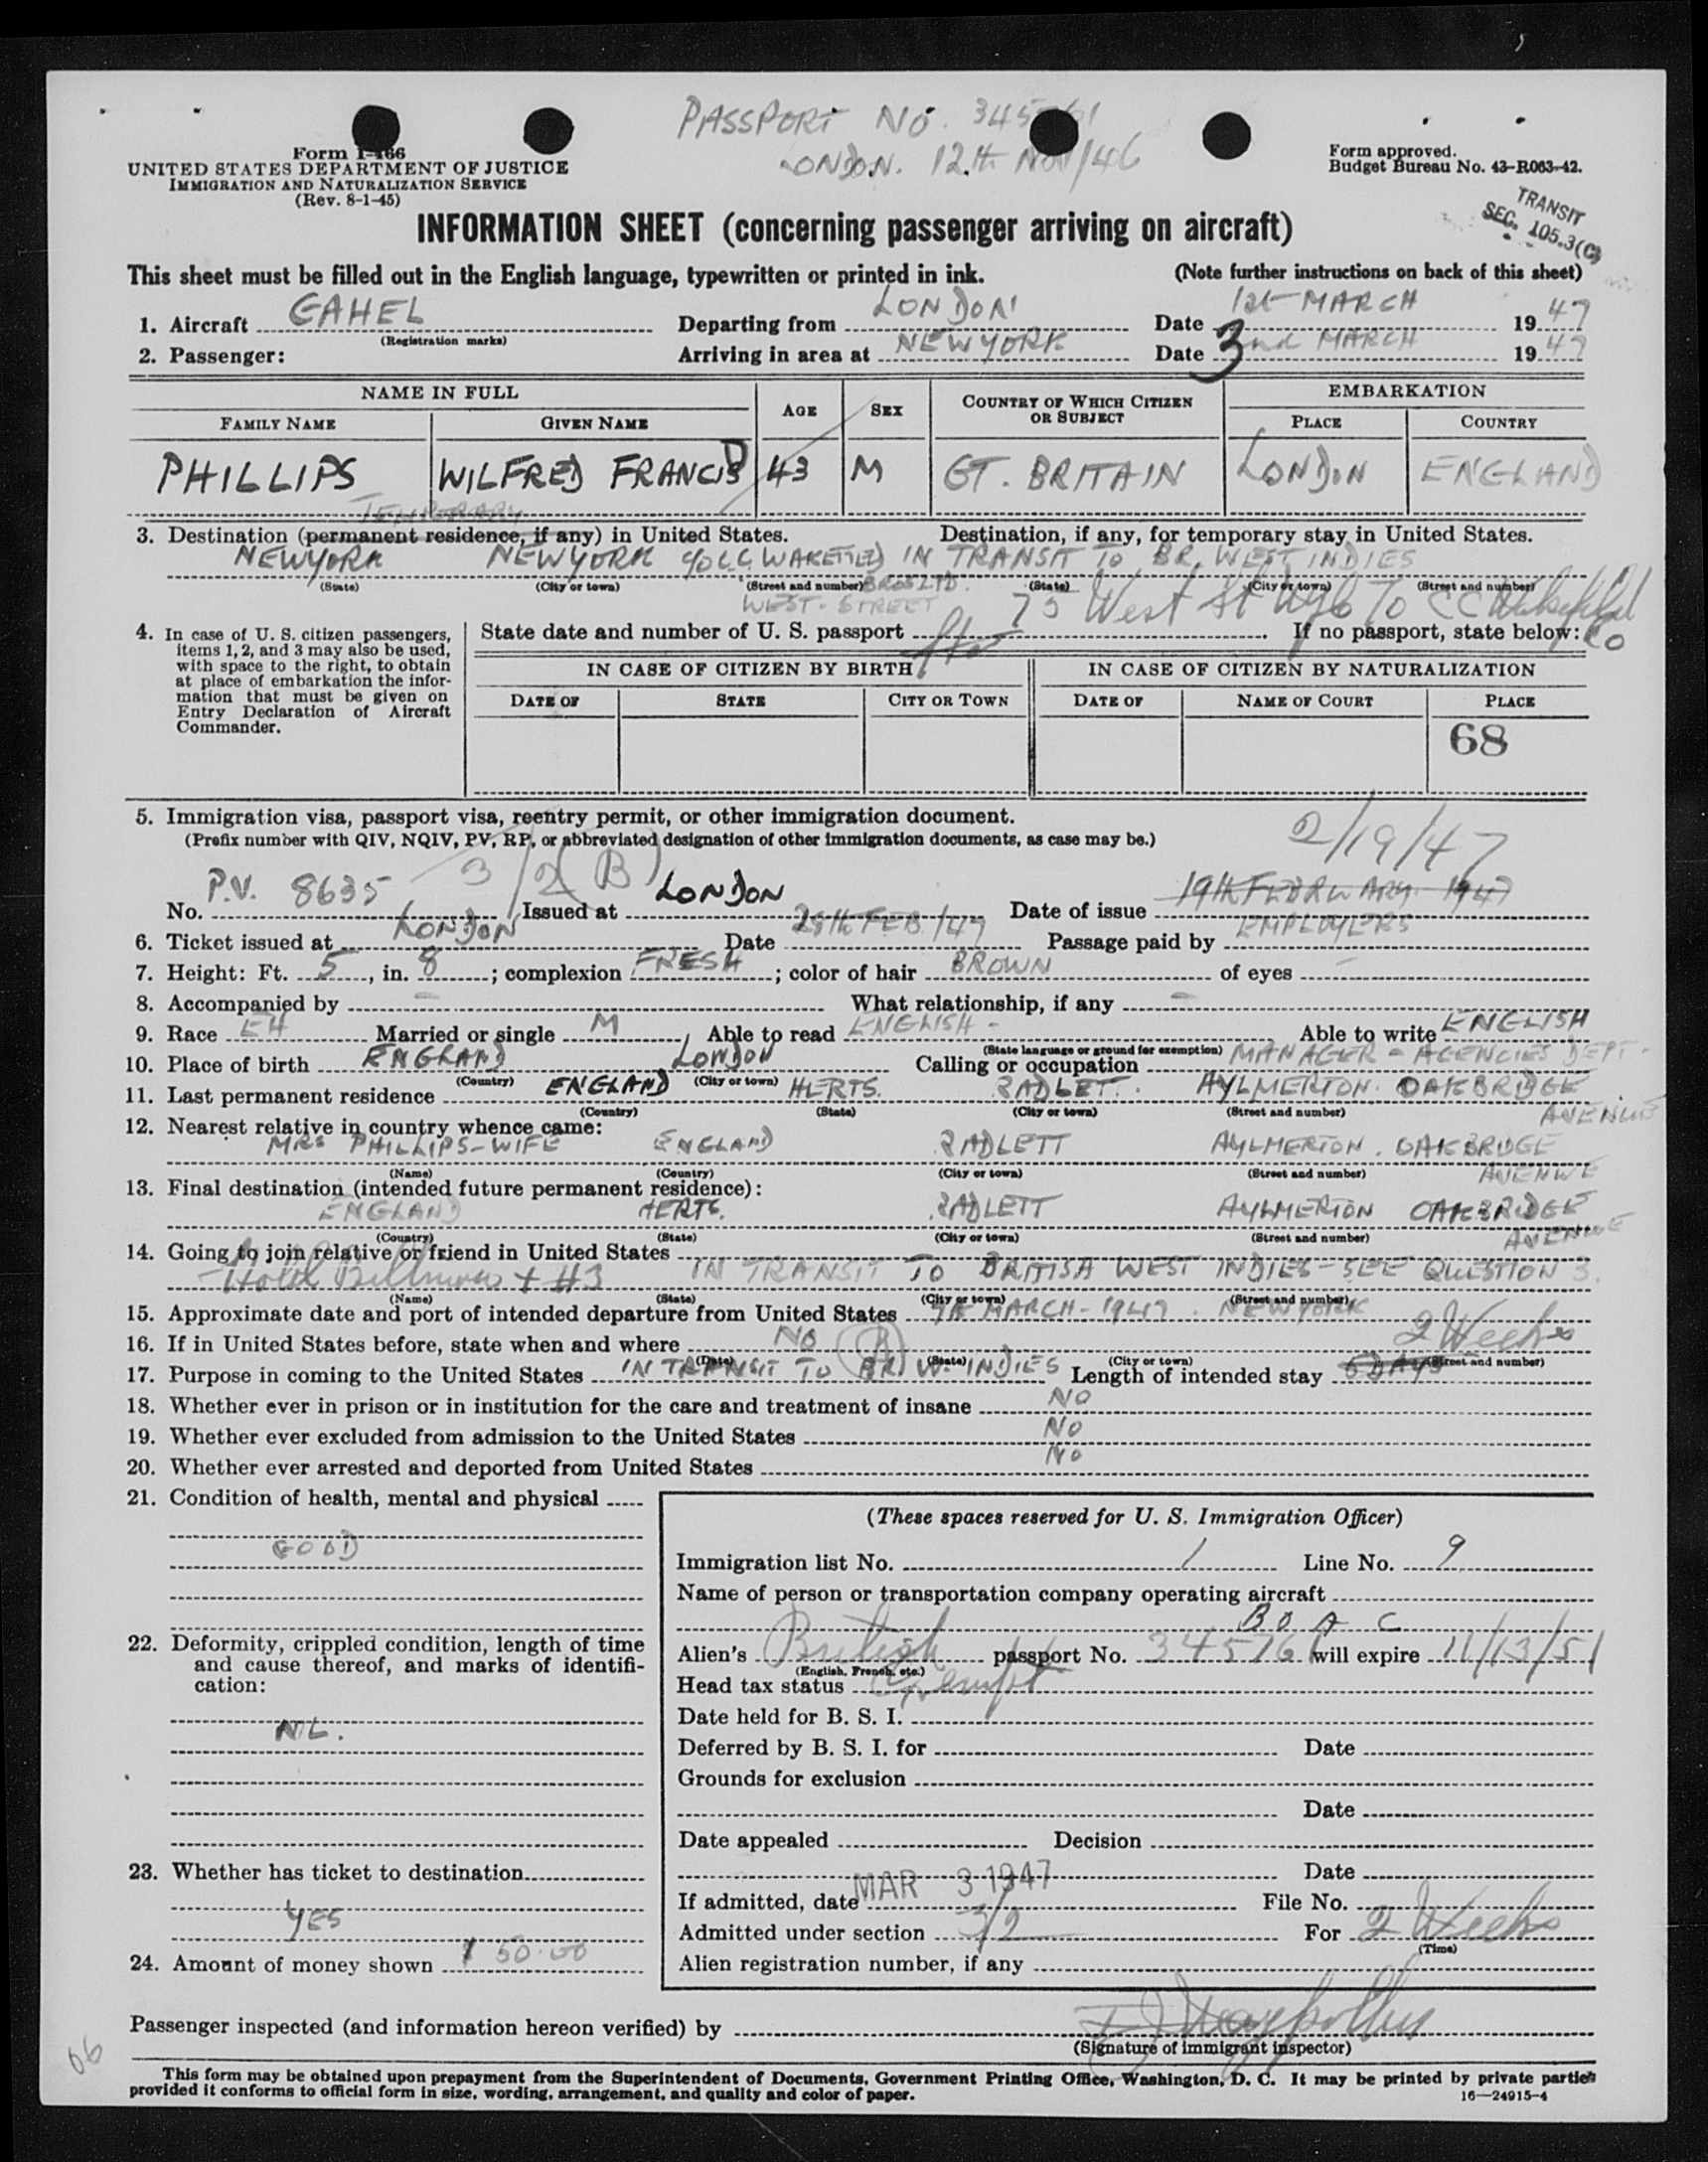 PASSPORT NO. 345761
LONDON. 12th NOV/46
Form I-466
UNITED STATES DEPARTMENT OF JUSTICE
IMMIGRATION AND NATURALIZATION SERVICE
(Rev. 8-1-45)
Form approved.
Budget Bureau No. 43-R063-42.
TRANSIT
SEC. 105.3(C)
INFORMATION SHEET (concerning passenger arriving on aircraft)
This sheet must be filled out in the English language, typewritten or printed in ink. (Note further instructions on back of this sheet)
1. Aircraft GAHEL Departing from LONDON Date 1st MARCH 1947
(Registration marks)
2. Passenger: Arriving in area at NEW YORK Date 3 nd MARCH 1947
NAME IN FULL AGE SEX COUNTRY OF WHICH CITIZEN OR SUBJECT EMBARKATION
FAMILY NAME GIVEN NAME PLACE COUNTRY
PHILLIPS WILFRED FRANCIS D 43 M GT. BRITAIN LONDON ENGLAND
TEMPORARY
3. Destination (permanent residence, if any) in United States. Destination, if any, for temporary stay in United States.
NEW YORK NEW YORK c/o C.C. WAKEFIELD IN TRANSIT TO BR. WEST INDIES
(State) (City or town) (Street and number) BROS LTD. (State) (City or town) (Street and number)
WEST. STREET 75 West St NYC To C C Wakefield Co
4. In case of U. S. citizen passengers, items 1, 2, and 3 may also be used, with space to the right, to obtain at place of embarkation the information that must be given on Entry Declaration of Aircraft Commander.
State date and number of U. S. passport . If no passport, state below:
IN CASE OF CITIZEN BY BIRTH IN CASE OF CITIZEN BY NATURALIZATION
DATE OF STATE CITY OR TOWN DATE OF NAME OF COURT PLACE
68
5. Immigration visa, passport visa, reentry permit, or other immigration document.
(Prefix number with QIV, NQIV, PV, RP, or abbreviated designation of other immigration documents, as case may be.)
3/2(B) 2/19/47
No. P.V. 8635 Issued at LONDON Date of issue 19th FEBRUARY 1947
6. Ticket issued at LONDON Date 28th FEB/47 Passage paid by EMPLOYERS
7. Height: Ft. 5, in. 8; complexion FRESH; color of hair BROWN of eyes -
8. Accompanied by - What relationship, if any -
9. Race EH Married or single M, Able to read ENGLISH - Able to write ENGLISH
(State language or ground for exemption)
10. Place of birth ENGLAND LONDON Calling or occupation MANAGER - AGENCIES DEPT.
(Country) (City or town)
11. Last permanent residence ENGLAND HERTS. RADLET. AYLMERTON. OAKBRIDGE AVENUE
(Country) (State) (City or town) (Street and number)
12. Nearest relative in country whence came:
MRS PHILLIPS-WIFE ENGLAND RADLETT AYLMERTON. OAKBRIDGE AVENUE
(Name) (Country) (City or town) (Street and number)
13. Final destination (intended future permanent residence):
ENGLAND HERTS. RADLETT AYLMERTON OAKBRIDGE AVENUE
(Country) (State) (City or town) (Street and number)
14. Going to join relative or friend in United States
Hotel + #3 IN TRANSIT TO BRITISH WEST INDIES-SEE QUESTION 3.
(Name) (State) (City or town) (Street and number)
15. Approximate date and port of intended departure from United States 7th MARCH-1947. NEW YORK
16. If in United States before, state when and where NO 2 Weeks
(Date) (State) (City or town) (Street and number)
17. Purpose in coming to the United States IN TRANSIT TO BR. W. INDIES Length of intended stay 5 DAYS
18. Whether ever in prison or in institution for the care and treatment of insane NO
19. Whether ever excluded from admission to the United States NO
20. Whether ever arrested and deported from United States NO
21. Condition of health, mental and physical
GOOD
22. Deformity, crippled condition, length of time and cause thereof, and marks of identification:
NIL.
23. Whether has ticket to destination
YES
24. Amount of money shown $ 50.00
(These spaces reserved for U. S. Immigration Officer)
Immigration list No. 1 Line No. 9
Name of person or transportation company operating aircraft
B O A C
Alien's British passport No. 345761 will expire 11/13/51
(English, French, etc.)
Head tax status Exempt
Date held for B. S. I.
Deferred by B. S. I. for Date
Grounds for exclusion
Date
Date appealed Decision
Date
If admitted, date MAR 3 1947 File No.
Admitted under section 3/2 For 2 Weeks
(Time)
Alien registration number, if any
Passenger inspected (and information hereon verified) by
(Signature of immigrant inspector)
66
This form may be obtained upon prepayment from the Superintendent of Documents, Government Printing Office, Washington, D. C. It may be printed by private parties
provided it conforms to official form in size, wording, arrangement, and quality and color of paper. 16—24915-4